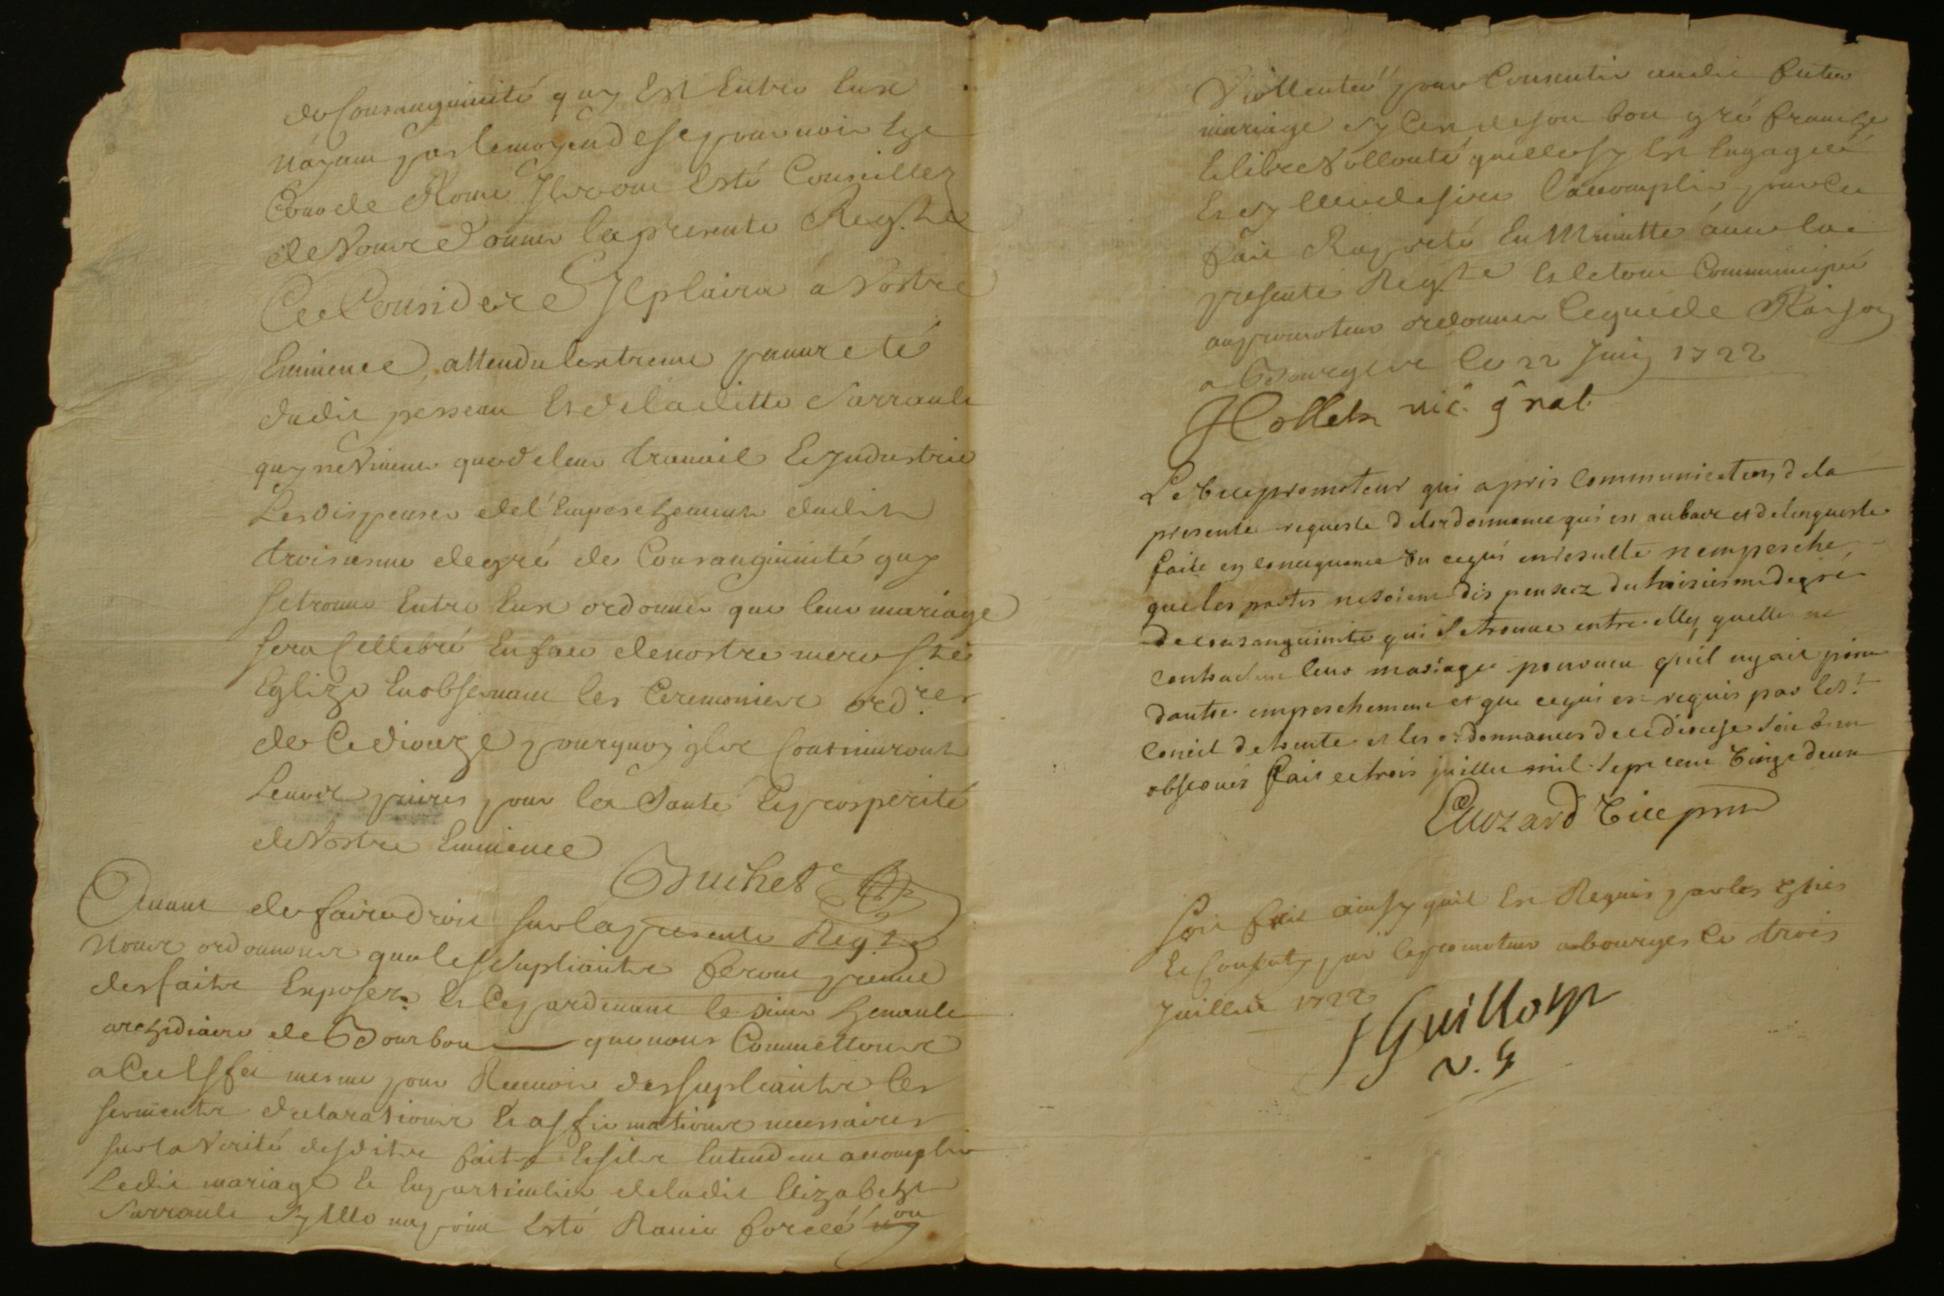 de Consanguinité quy Est Entre Eux
n'ayant pas le moyen de se pourvoir En
Cour de Rome Ils ont Esté Conseillez
de Vous donner la presente Reqte
Ce Consideré Il plaira a Vostre
Eminence, attendu lextreme pauvreté
dudit pesseau Et de laditte Sarrault
quy ne Vivent que de leur travail Et Industrie
Les dispenser de l'Empeschement dudit
troisiesme degré de Consanguinité quy
se trouve Entre Eux ordonner que leur mariage
sera Cellebré En face de nostre mere Ste
Eglize En observant les Ceremonies ordres
de Ce diouze pourquoy ils Continuront
Leurs prieres pour la Santé Et prosperité
de Vostre Eminence
Buchet
Avant de faire droit sur la presente Reqte
Nous ordonnons que les Supliants feront preuve
des faits Exposez Et Ce pardevant le sieur henault
archidiacre de Bourbon que nous Commettons
a Cet Effet mesme pour Recevoir des supliants les
serments declarations Et affirmations necessaires
sur la Verité desdits faits Et sils Entendent accomplir
Ledit mariage Et En particulier de ladite Elizabeth
Sarrault Sy Elle nay point Esté Ravie forcée ou
Viollentée pour Consentir audit futur
mariage sy Cest de son bon gré franche
Et libre Vollonté quelle sy Est Engagée
Et sy Elle desire laccomplir pour Ce
fait Raporté En Minutte avec la
presente Reqte Et le tout Communiqué
au promoteur ordonner Ce que de Raison
a Bourges Ce 22 Juin 1722
vic. gnal.
Le vicepromoteur qui a pris communication de la
presente requeste de lordonnance qui est au bas et de lenqueste
faite en consequence vu ce qui en resulte nempesche
que les parties ne soient dispensez du troisiesme degré
de consanguinité qui se trouve entre elles quelles ne
contractent leur mariage pourveu quil ny ait point
dautre empeschement et que ce qui est requis par le St
Concil de trente et les ordonnances de ce diocese soit
observé fait ce trois juillet mil sept cent vingt deux
vice prom
Soit fait ainsy quil Est Requis par les
Et Consenty par le promoteur a bourges Ce trois
Juillet 1722
Guillon
v. g